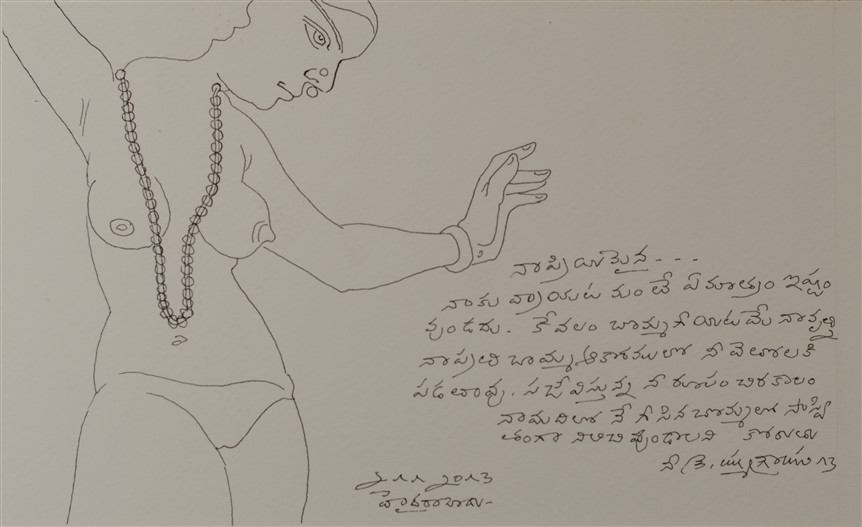 నాప్రియమైన - - -
నాకు వ్రాయుట మంటే ఏమాత్రం ఇష్టం
వుండదు. కేవలం బొమ్మగీయుటమే నావృత్తి
నాప్రతి బొమ్మ ఆకారములో నీ వెలుగులకి
పడతావు. సజీవిస్తున్న నీ రూపం చిరకాలం
నామదిలో నే గీసిన బొమ్మలో సాస్వ
తంగా నిలిచి వుండాలని కోరుతు
నీ
2013
హైదరాబాదు-